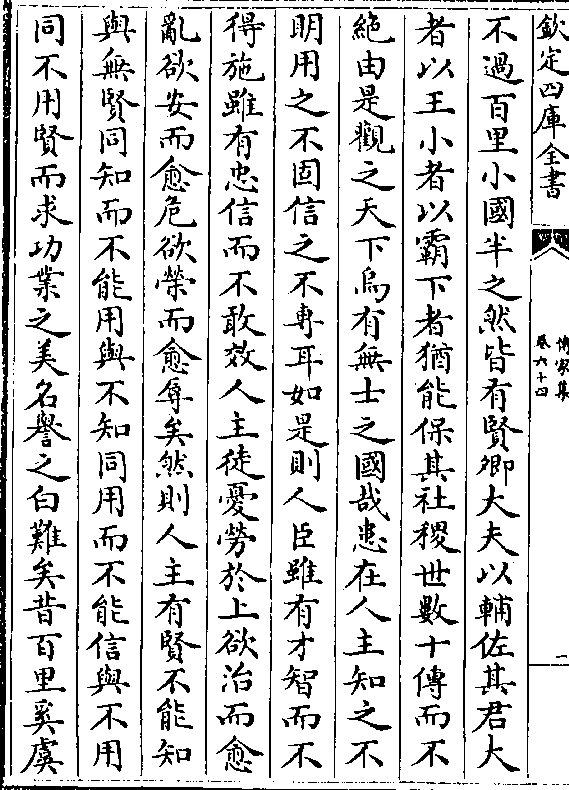 欽定四庫全書
傳家集
卷六十四
一
不過百里小國半之然皆有賢卿大夫以輔佐其君大
者以王小者以霸下者猶能保其社稷世數十傳而不
絶由是觀之天下烏有無士之國哉患在人主知之不
明用之不固信之不専耳如是則人臣雖有才智而不
得施雖有忠信而不敢效人主徒憂勞於上欲治而愈
亂欲安而愈危欲榮而愈辱矣然則人主有賢不能知
與無賢同知而不能用與不知同用而不能信與不用
同不用賢而求功業之美名譽之白難矣昔百里奚虞